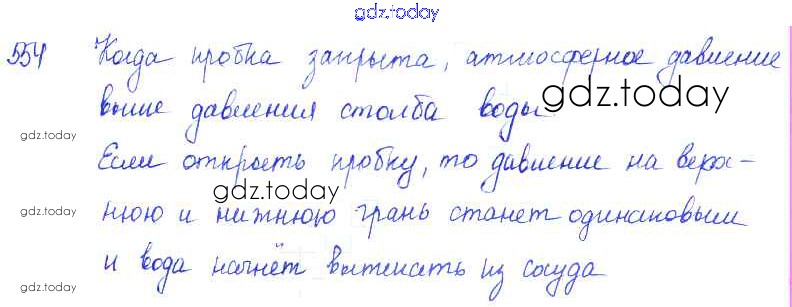 gdz.today
554 Когда пробка закрыта, атмосферное давление
выше давления столба воды
gdz.today
gdz.today
Если открыть пробку, то давление на верх-
gdz.today
gdz.today
нюю и нижнюю грань станет одинаковым
и вода начнёт вытекать из сосуда
gdz.today